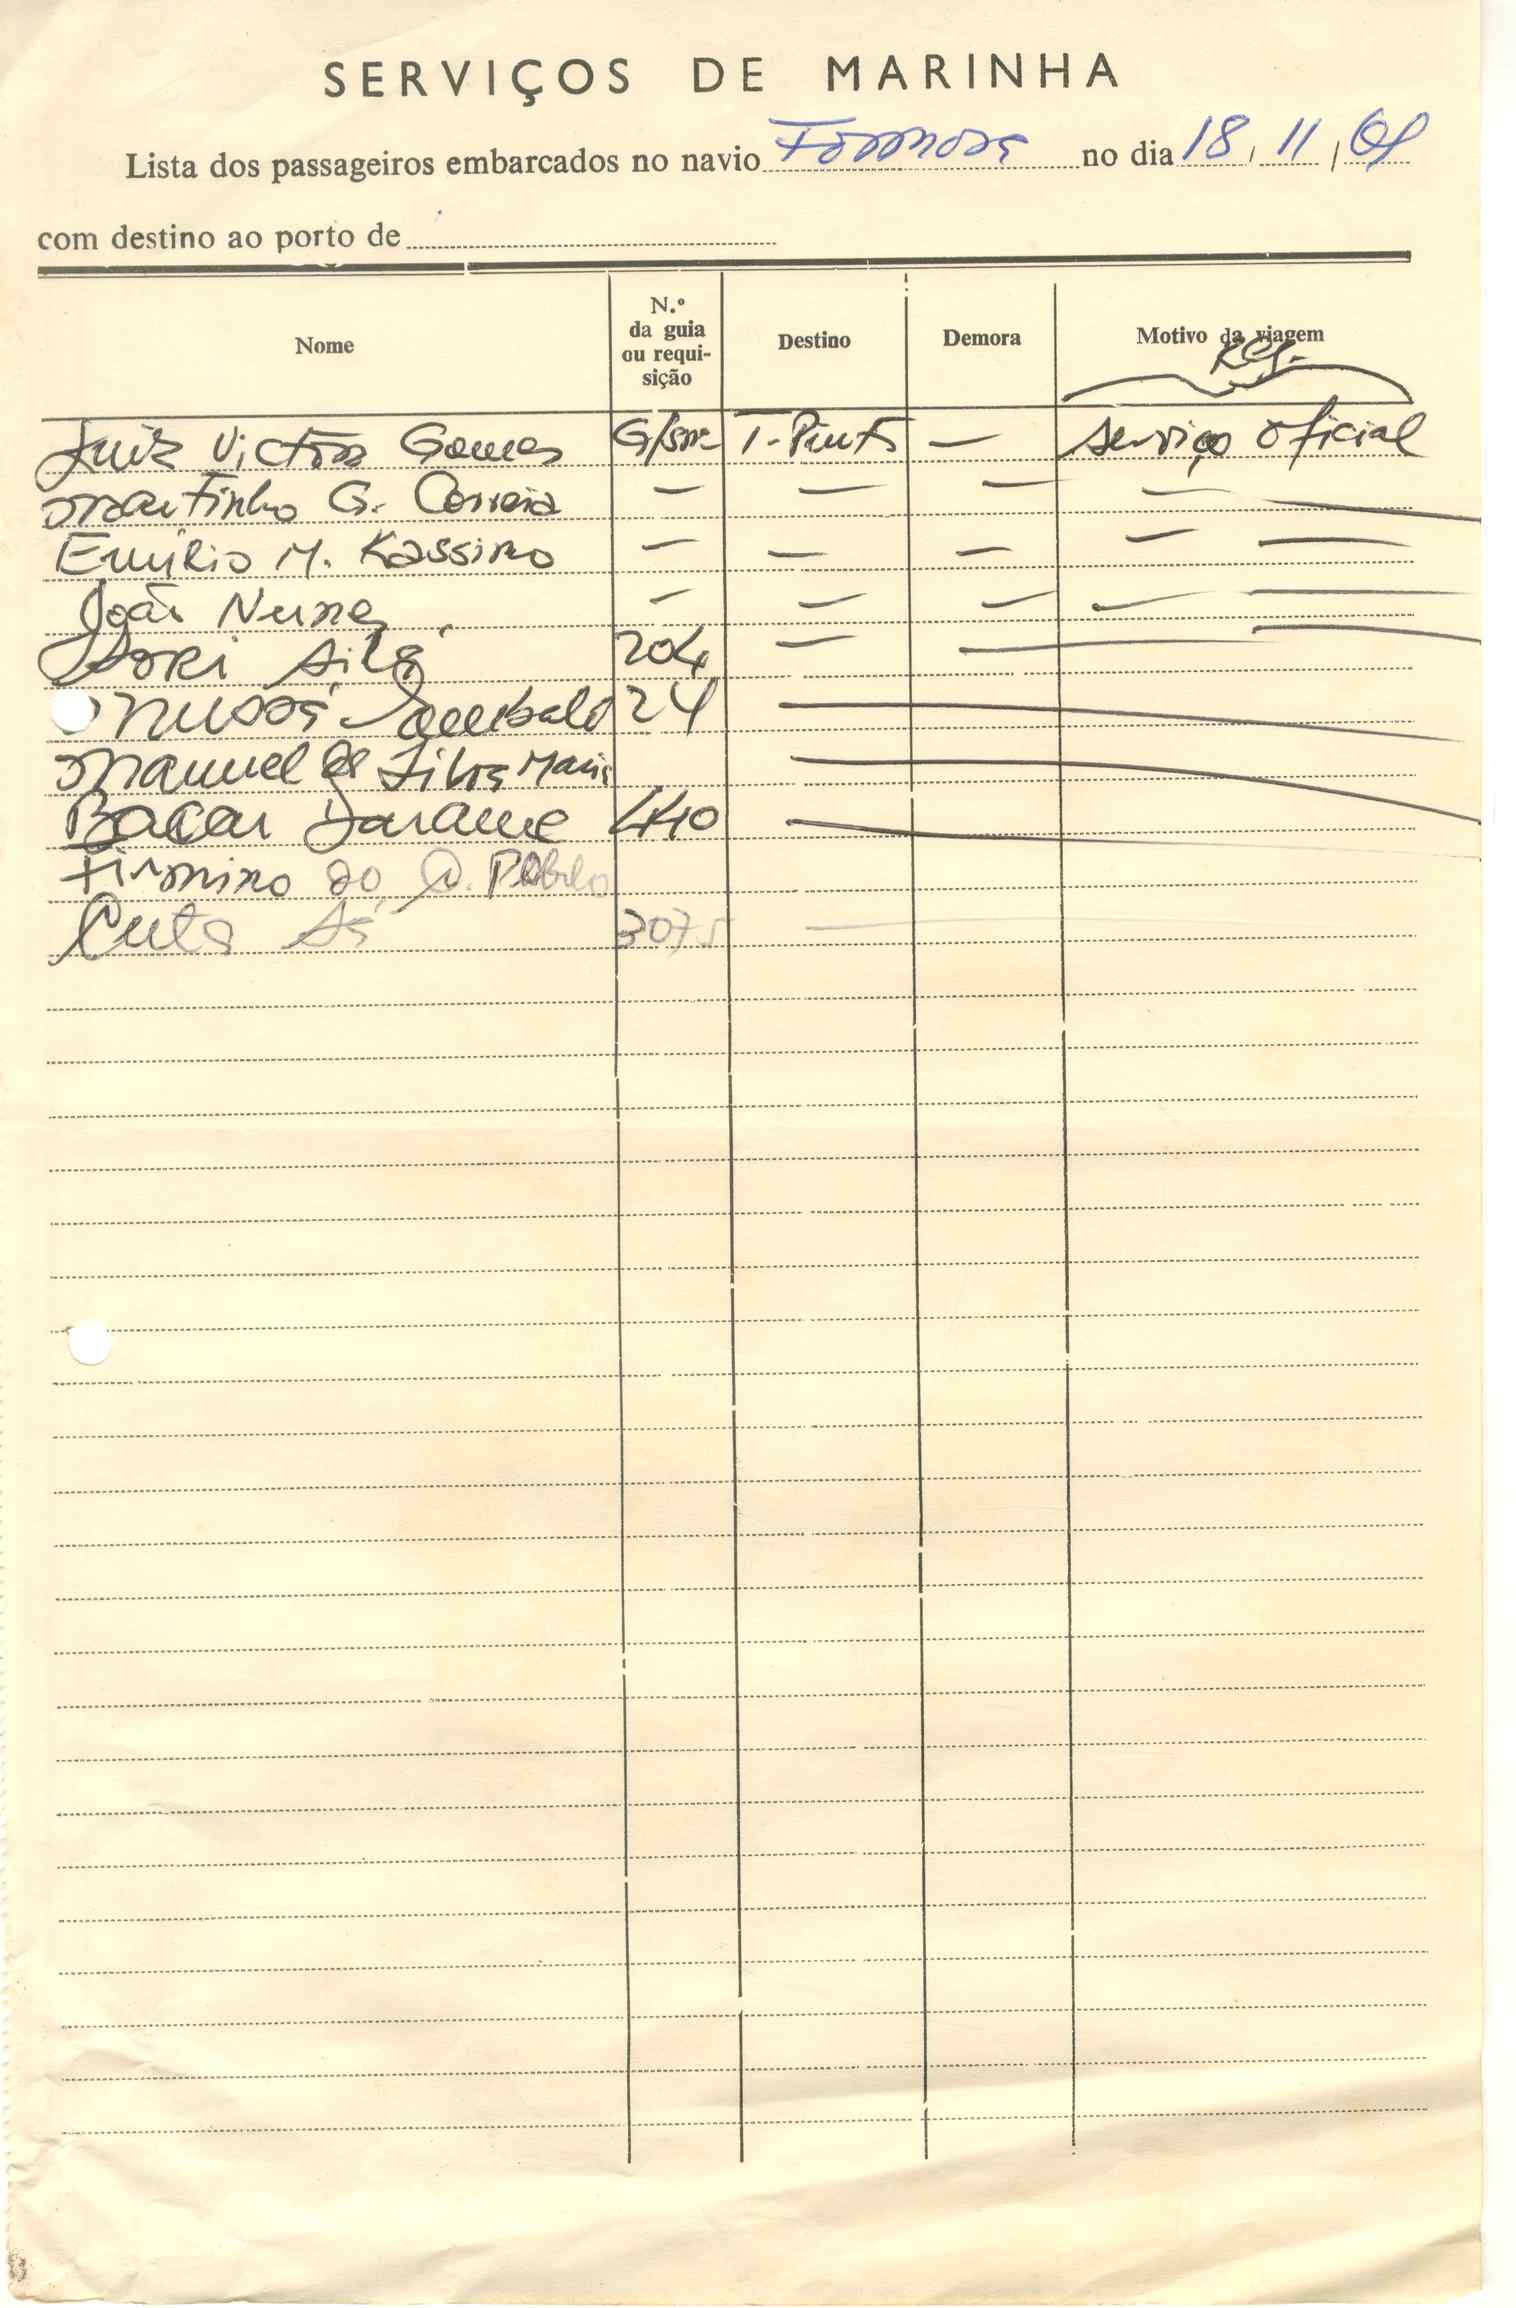 SERVIÇOS DE MARINHA
Lista dos passageiros embarcados no navio Formosa no dia 18 / 11 /
com destino ao porto de
Nome N.º da guia ou requi-sição Destino Demora Motivo da viagem
Luiz Victor Gomes T. Pinto — serviço oficial
Martinho G. Correia — — — —
Emílio M. Kassimo — — — —
João Nunes — — — —
Sori Silá 204 — —
Mussá Sambalo 24 —
Manuel da Silva —
Bacar Darame 440 —
Firmino do
Cuta Sá 3075 —